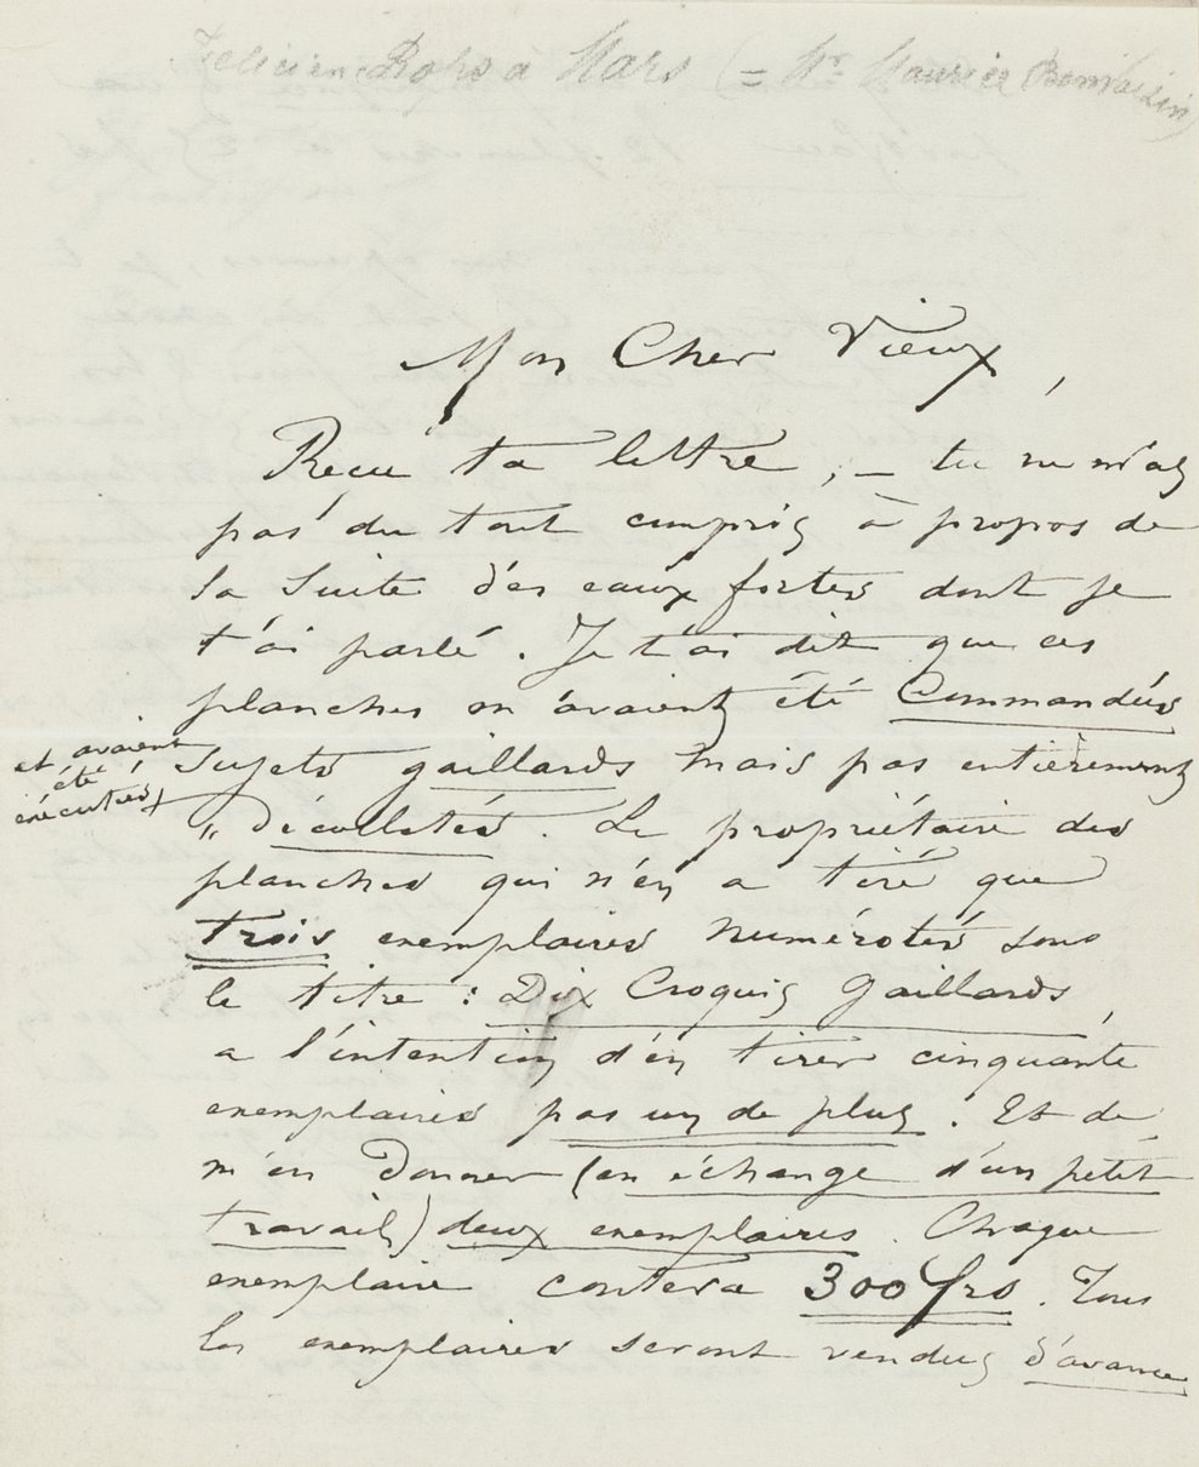 Felicien Rops à Mars (= Mr Maurice Bonvoisin)
Mon Cher Vieux,
Reçu ta lettre, – tu ne m'as
pas du tout compris à propos de
la suite d'es eaux fortes dont je
t'ai parlé. Je t'ai dit que ces
planches m'avaient été Commandées
et avaient
été
exécutées
sujets gaillards mais pas entièrement
" décolletés. Le propriétaire des
planches qui n'en a tiré que
trois exemplaires numérotés sous
le titre : Dix Croquis Gaillards,
a l'intention d'en tirer cinquante
exemplaires pas un de plus. Et de
m'en donner (en échange d'un petit
travail) deux exemplaires. Chaque
exemplaire coutera 300 frs. Tous
les exemplaires seront vendus d'avance